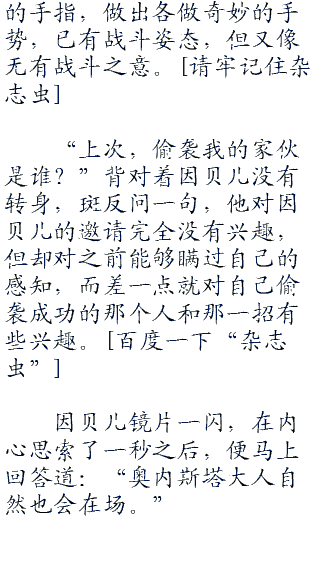 的手指，做出各做奇妙的手
势，已有战斗姿态，但又像
无有战斗之意。[请牢记住杂
志虫]
“上次，偷袭我的家伙
是谁？”背对着因贝儿没有
转身，斑反问一句，他对因
贝儿的邀请完全没有兴趣，
但却对之前能够瞒过自己的
感知，而差一点就对自己偷
袭成功的那个人和那一招有
些兴趣。[百度一下“杂志
虫”]
因贝儿镜片一闪，在内
心思索了一秒之后，便马上
回答道：“奥内斯塔大人自
然也会在场。”